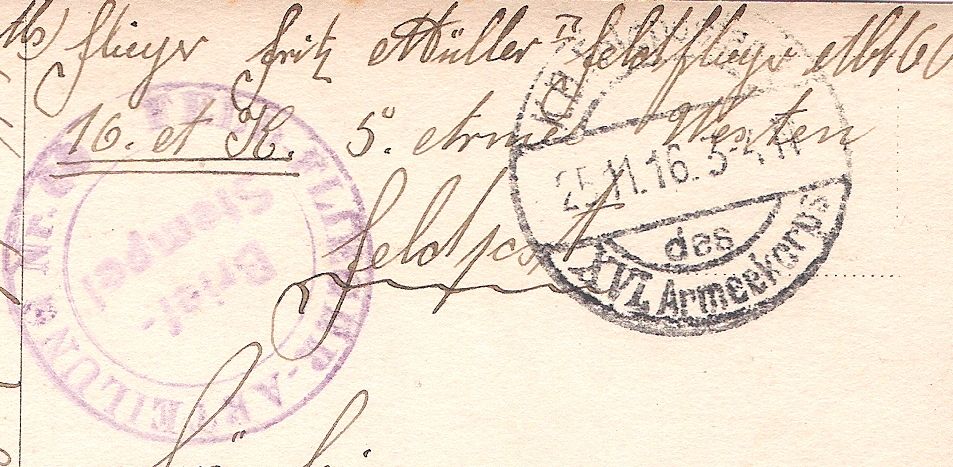 Flieger Fritz Müller Feldflieger Abt 60
16. et K. 5. Armee Westen
Feldpost
25.11.16. 5-
des
XVI. Armeekorps
FELD-FLIEGER-ABTEILUNG Nr. 6
Brief-
Stempel